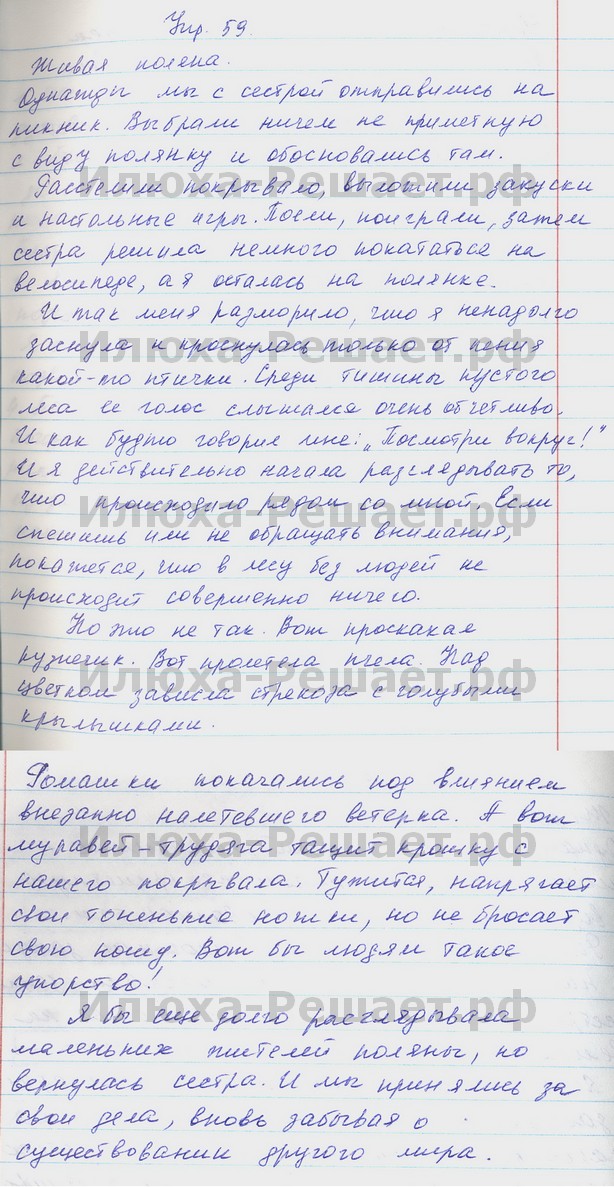 Упр. 59.
Живая поляна.
Однажды мы с сестрой отправились на
пикник. Выбрали ничем не приметную
с виду полянку и обосновались там.
Расстелили покрывало, выложили закуски
и настольные игры. Поели, поиграли, затем
сестра решила немного покататься на
велосипеде, а я осталась на полянке.
И так меня разморило, что я ненадолго
заснула и проснулась только от пения
какой-то птички. Среди тишины пустого
леса ее голос слышался очень отчетливо.
И как будто говорил мне: „Посмотри вокруг!"
И я действительно начала разглядывать то,
что происходило рядом со мной. Если
спешишь или не обращать внимания,
покажется, что в лесу без людей не
происходит совершенно ничего.
Но это не так. Вот проскакал
кузнечик. Вот пролетела пчела. Над
цветком зависла стрекоза с голубыми
крылышками.
Ромашки покачались под влиянием
внезапно налетевшего ветерка. А вот
муравей-трудяга тащит крошку с
нашего покрывала. Тужится, напрягает
свои тоненькие ножки, но не бросает
свою ношу. Вот бы людям такое
упорство!
Я бы еще долго разглядывала
маленьких жителей поляны, но
вернулась сестра. И мы принялись за
свои дела, вновь забывая о
существовании другого мира.
Илюха-Решает.рф
Илюха-Решает.рф
Илюха-Решает.рф
Илюха-Решает.рф
Илюха-Решает.рф
Илюха-Решает.рф
Илюха-Решает.рф